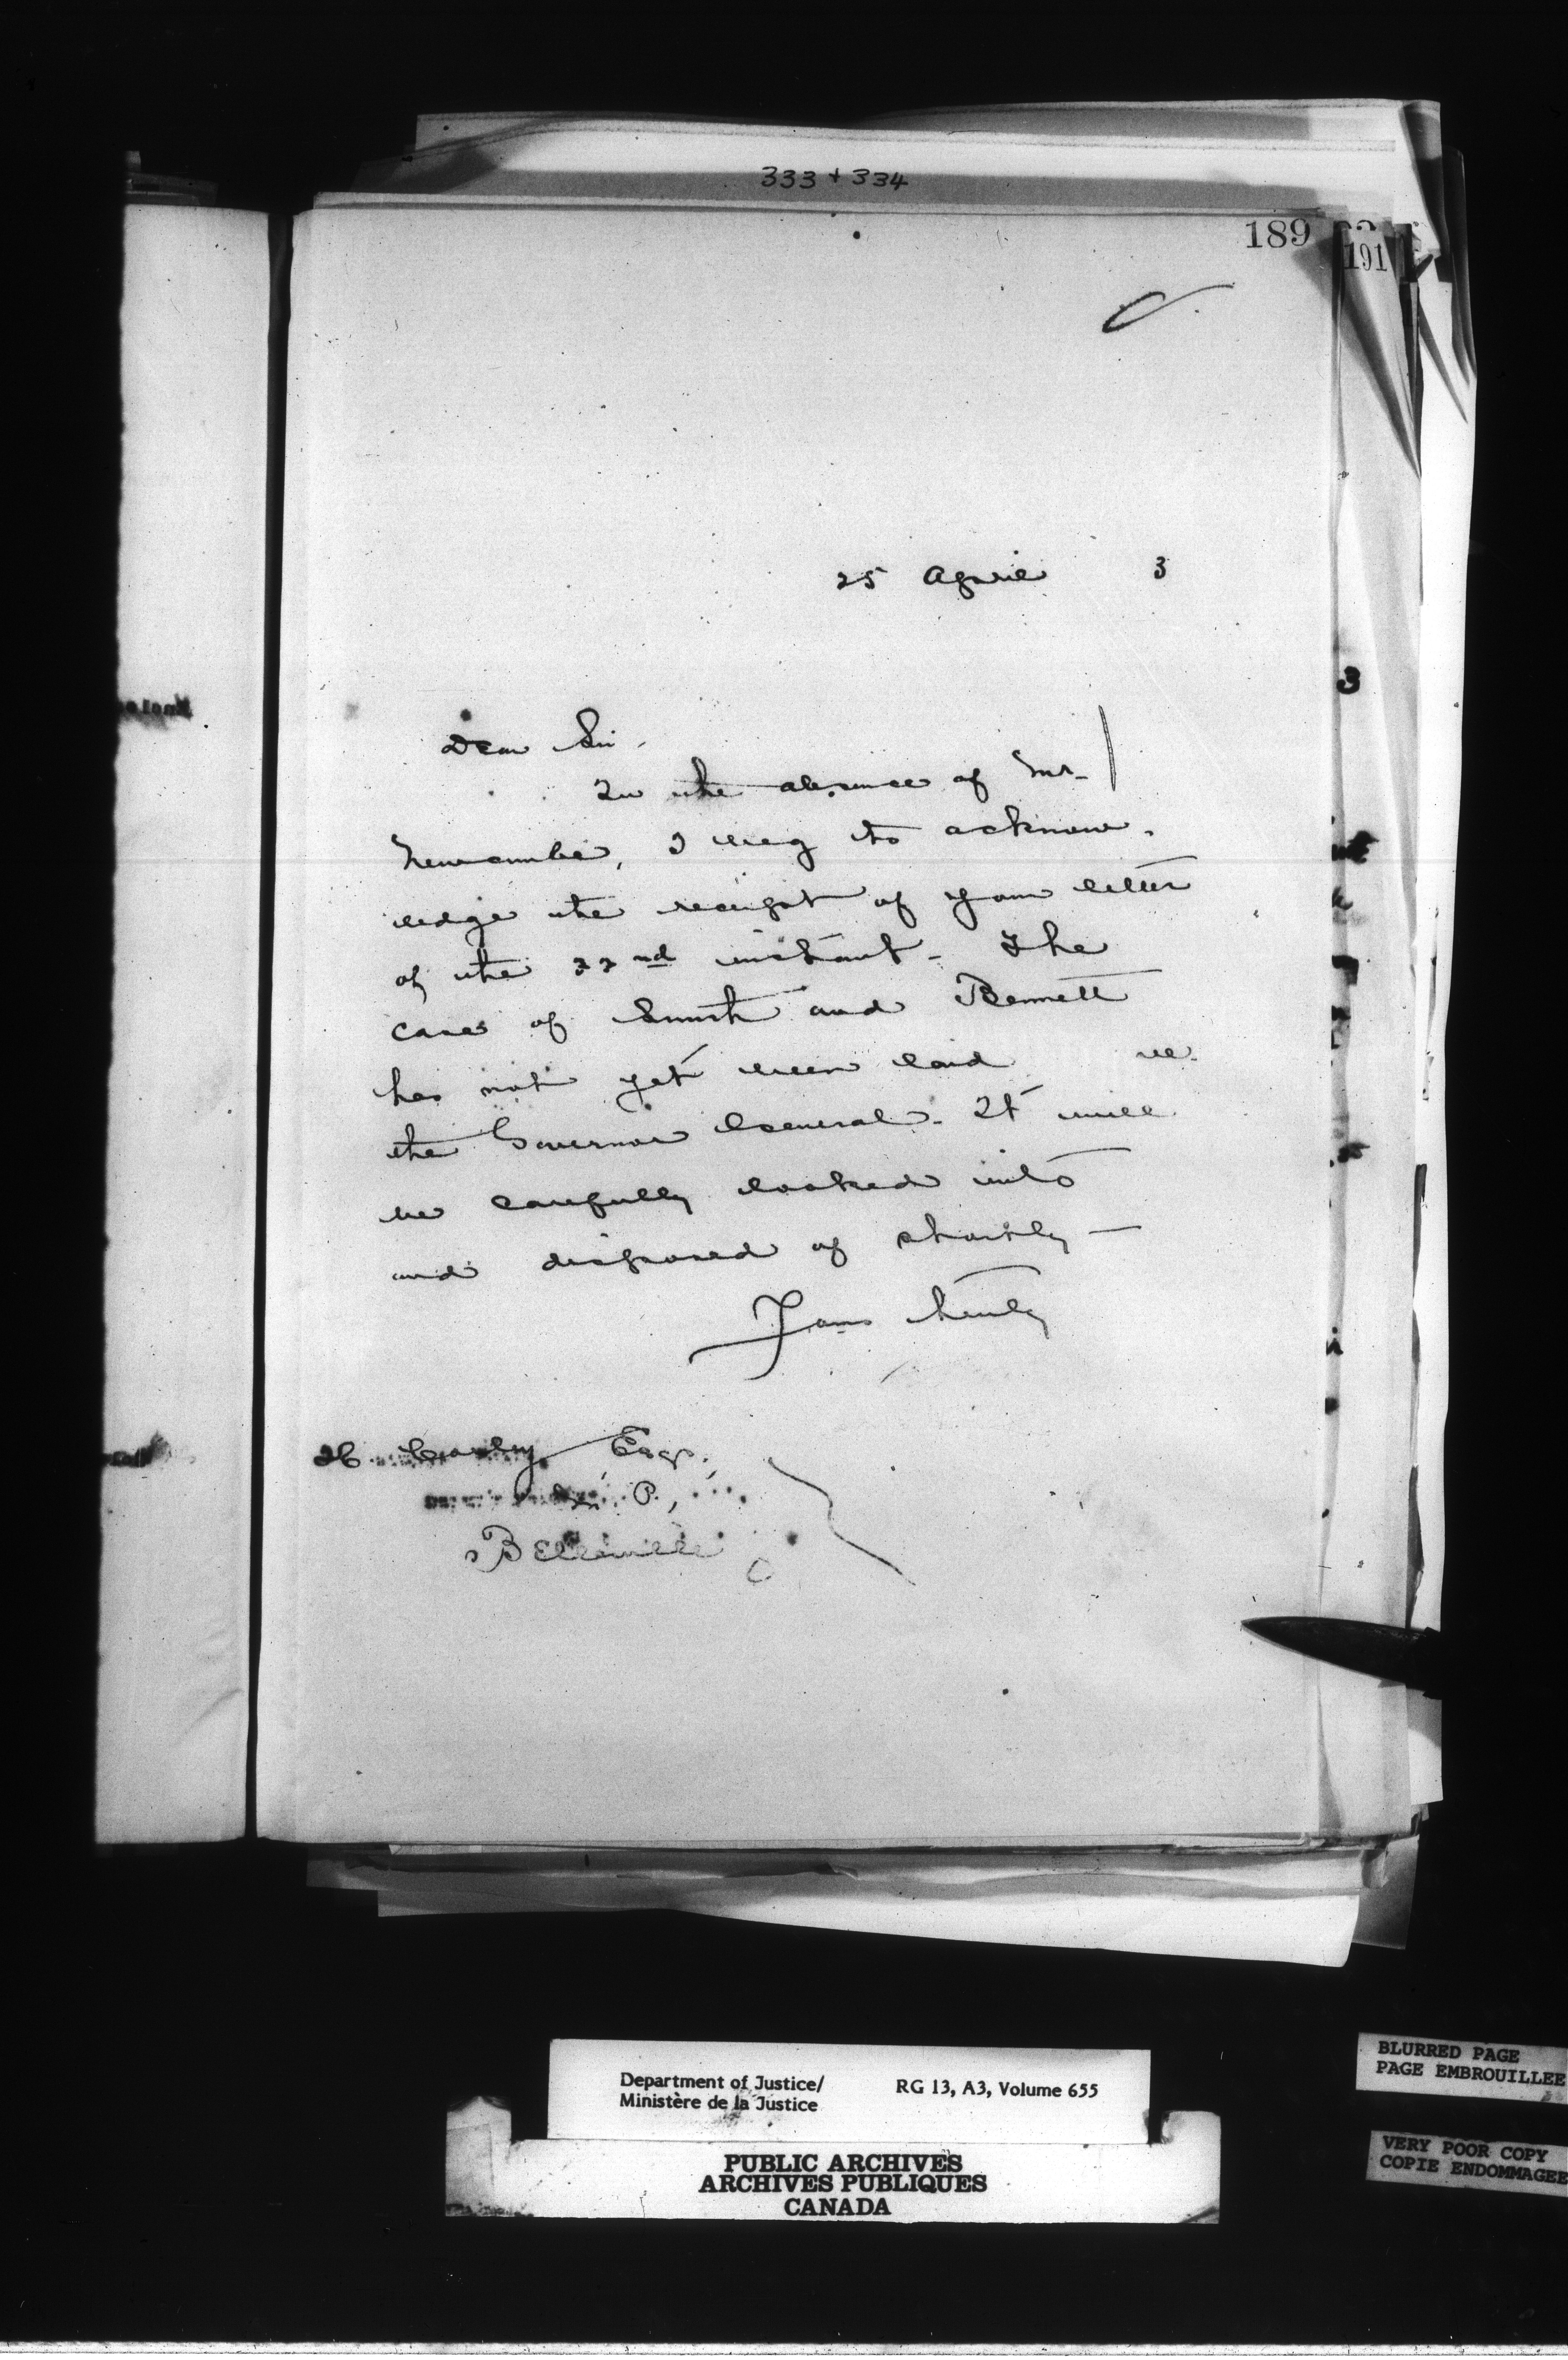 333 + 334
189
191
25 April 3
3
Dear Sir,
In the absence of Mr.
Newcombe, I beg to acknow-
ledge the receipt of your letter
of the 22nd instant. The
case of Smith and Bennett
has not yet been laid
the Governor General. It will
be carefully looked into
and disposed of shortly —
Yours truly
H Corby Esqr.
M. P.,
Belleville
Department of Justice/ RG 13, A3, Volume 655
Ministère de la Justice
PUBLIC ARCHIVES
ARCHIVES PUBLIQUES
CANADA
BLURRED PAGE
PAGE EMBROUILLEE
VERY POOR COPY
COPIE ENDOMMAGEE